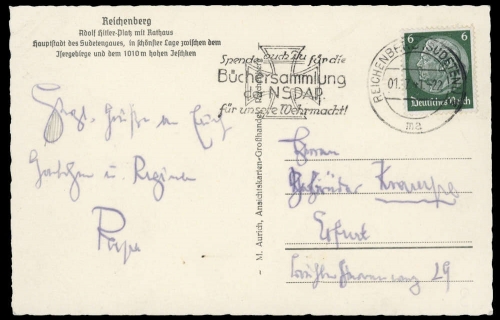 Reichenberg
Adolf Hitler-Platz mit Rathaus
Hauptstadt des Sudetengaues, in schönster Lage zwischen dem
Isergebirge und dem 1010 m hohen Jeschken
Spende auch Du für die
Büchersammlung
der NSDAP.
für unsere Wehrmacht!
REICHENBERG (SUDETENGAU)
01.
ma
6 6
Deutsches Reich
Herzl. Grüße an Euch
u. Regina
Papa
M. Aurich, Ansichtskarten-Großhandel, Reichenberg
Herrn
Gebrüder
Erfurt
29